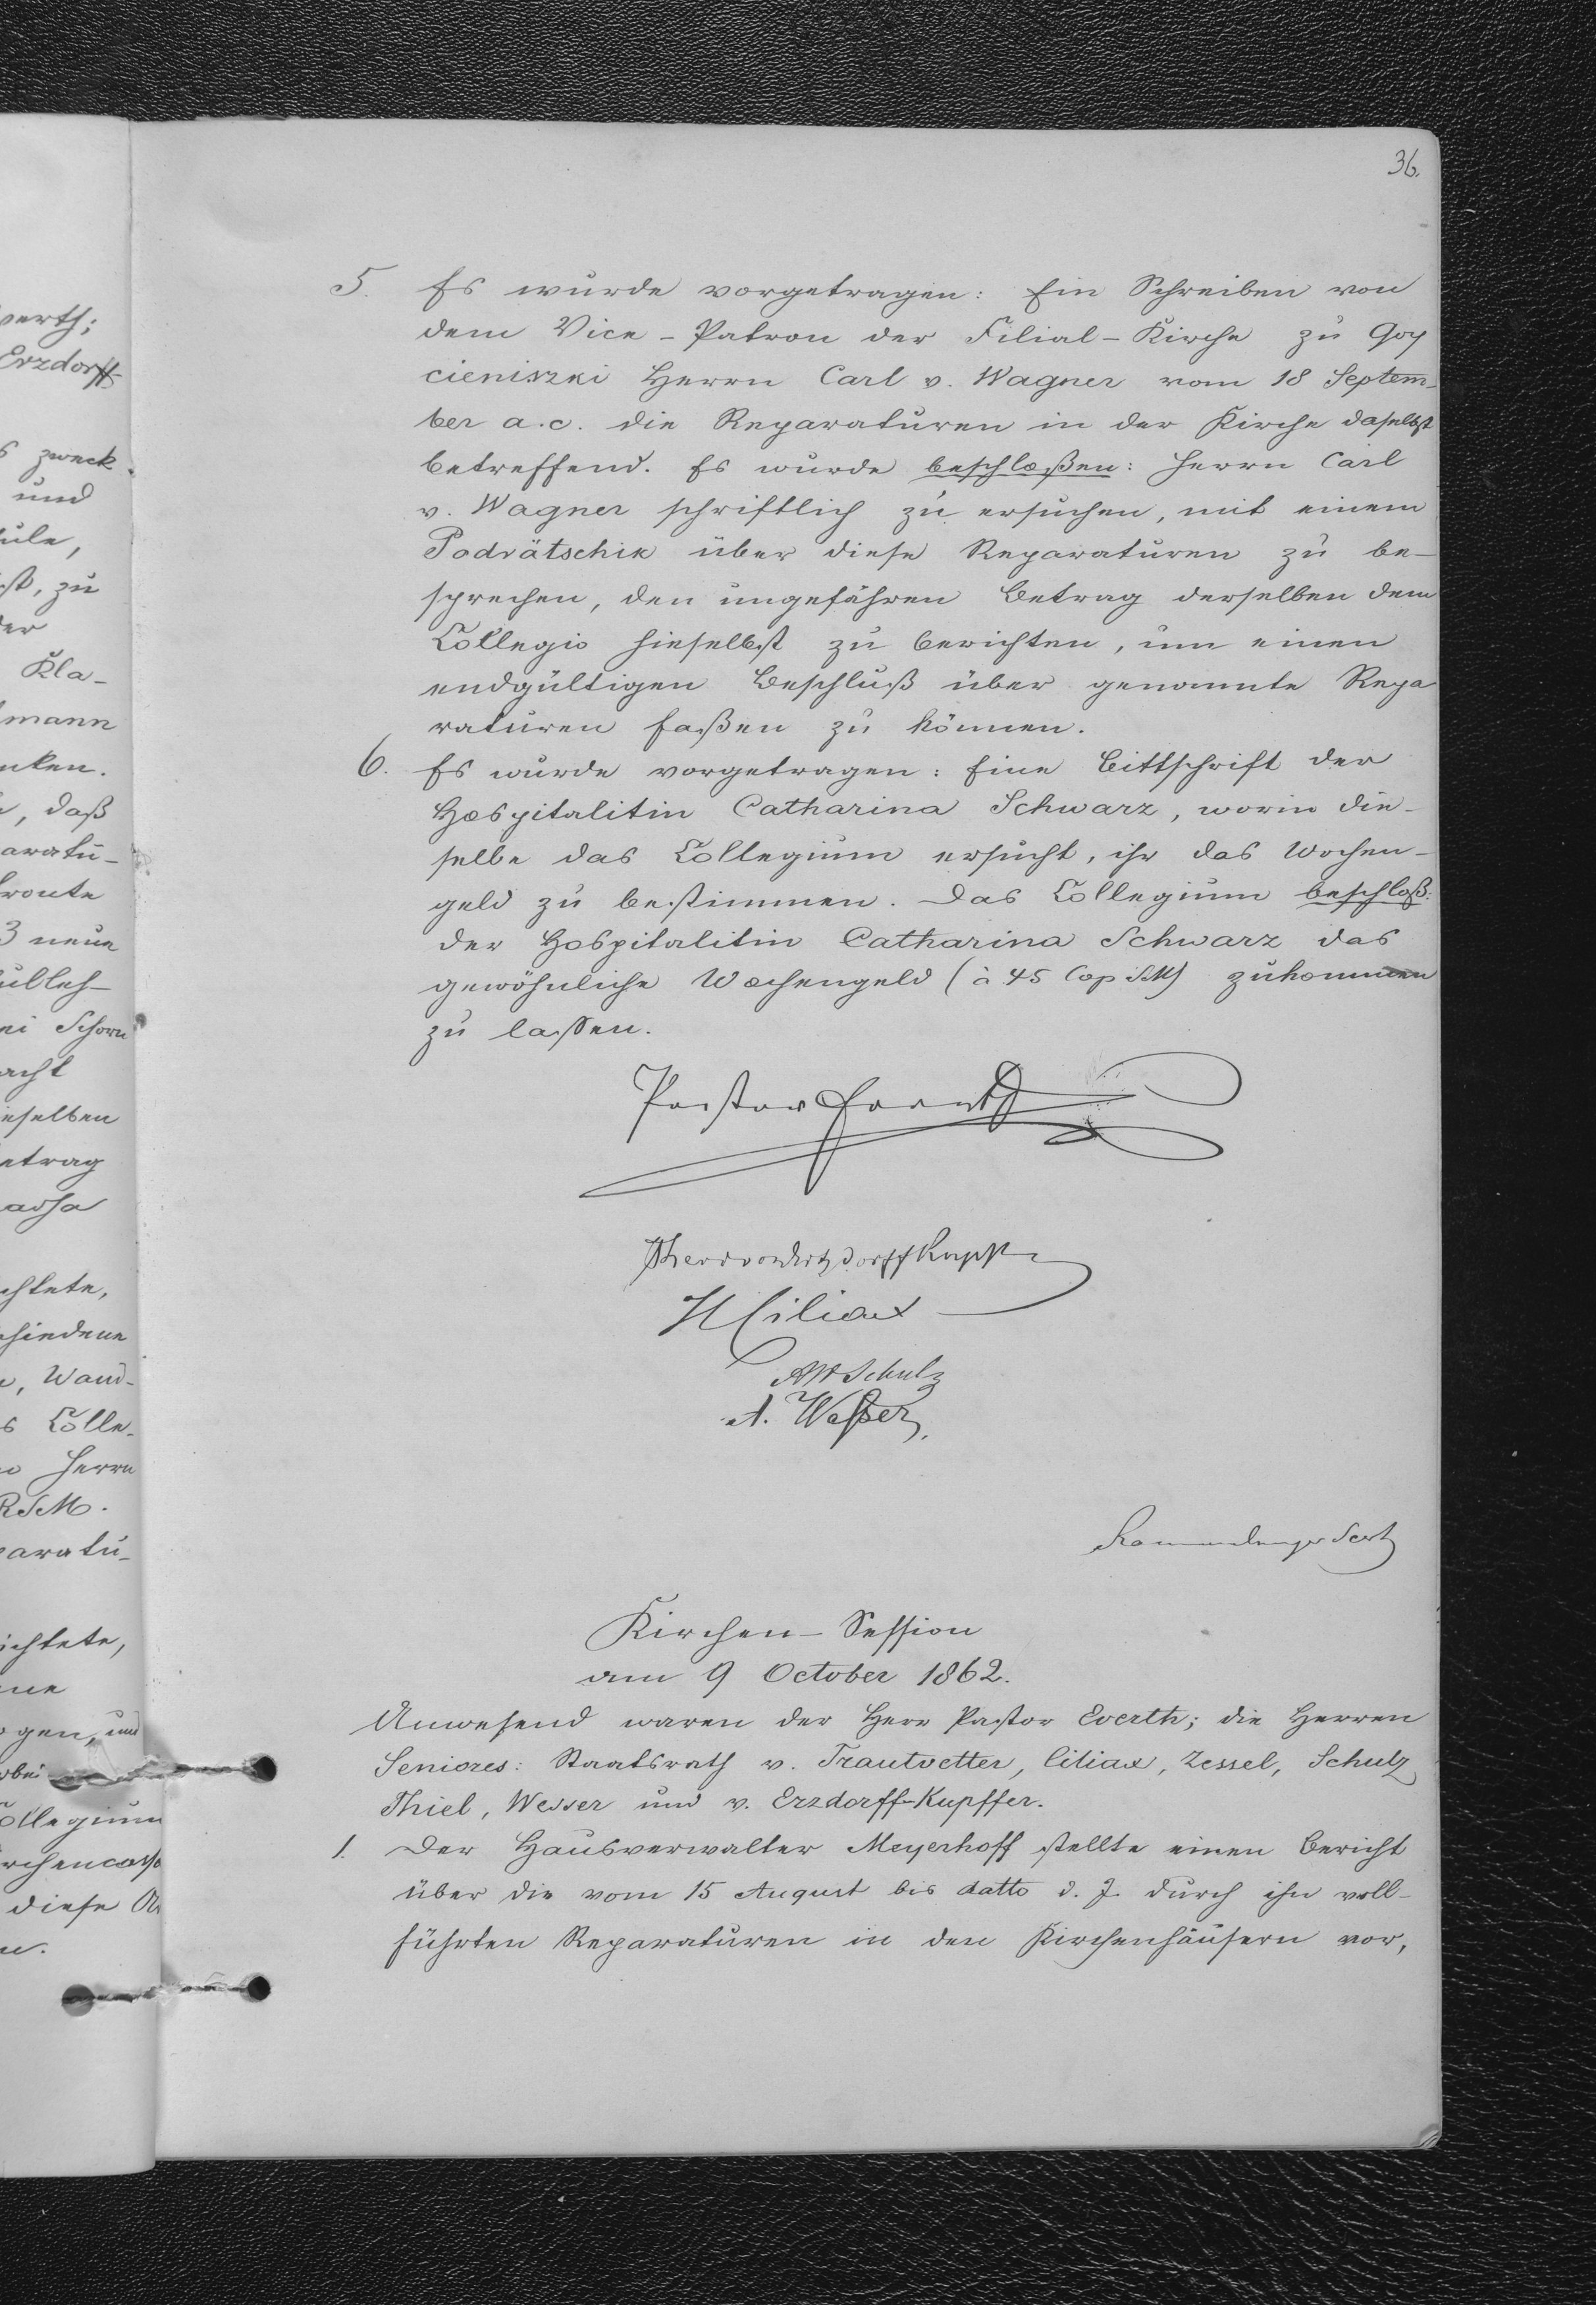 36.
5. Es wurde vorgetragen: Ein Schreiben von
dem Vice-Patron der Filial-Kirche zu Goy
cieniszki Herrn Carl v. Wagner vom 18 Septem-
ber a.c. die Reparaturen in der Kirche daselbst
betreffend. Es wurde beschloßen: Herrn Carl
v. Wagner schriftlich zu ersuchen, mit einem
Podrätschik über diese Reparaturen zu be-
sprechen, den ungefähren Betrag derselben dem
Collegio hieselbst zu berichten, um einen
endgültigen Beschluß über genannte Repa
raturen faßen zu können.
6. Es wurde vorgetragen: Eine Bittschrift der
Hospitalitin Catharina Schwarz, worin die-
selbe das Collegium ersucht, ihr das Wochen-
geld zu bestimmen. Das Collegium beschloß:
der Hospitalitin Catharina Schwarz das
gewöhnliche Wochengeld (à 45 Cop SM) zukommen
zu lassen.
Pastor Everth
Theodor von Erzdorff Kupffer
H Ciliax
AW Schulz
A. Wesser,
Kirchen-Session
am 9 October 1862.
Anwesend waren der Herr Pastor Everth; die Herren
Seniores: Staatsrath v. Trautvetter, Ciliax, Zessel, Schulz
Thiel, Wesser und v. Erzdorff-Kupffer.
1. Der Hausverwalter Meyerhoff stellte einen Bericht
über die vom 15 August bis datto d. J. durch ihn voll-
führten Reparaturen in den Kirchenhäusern vor,